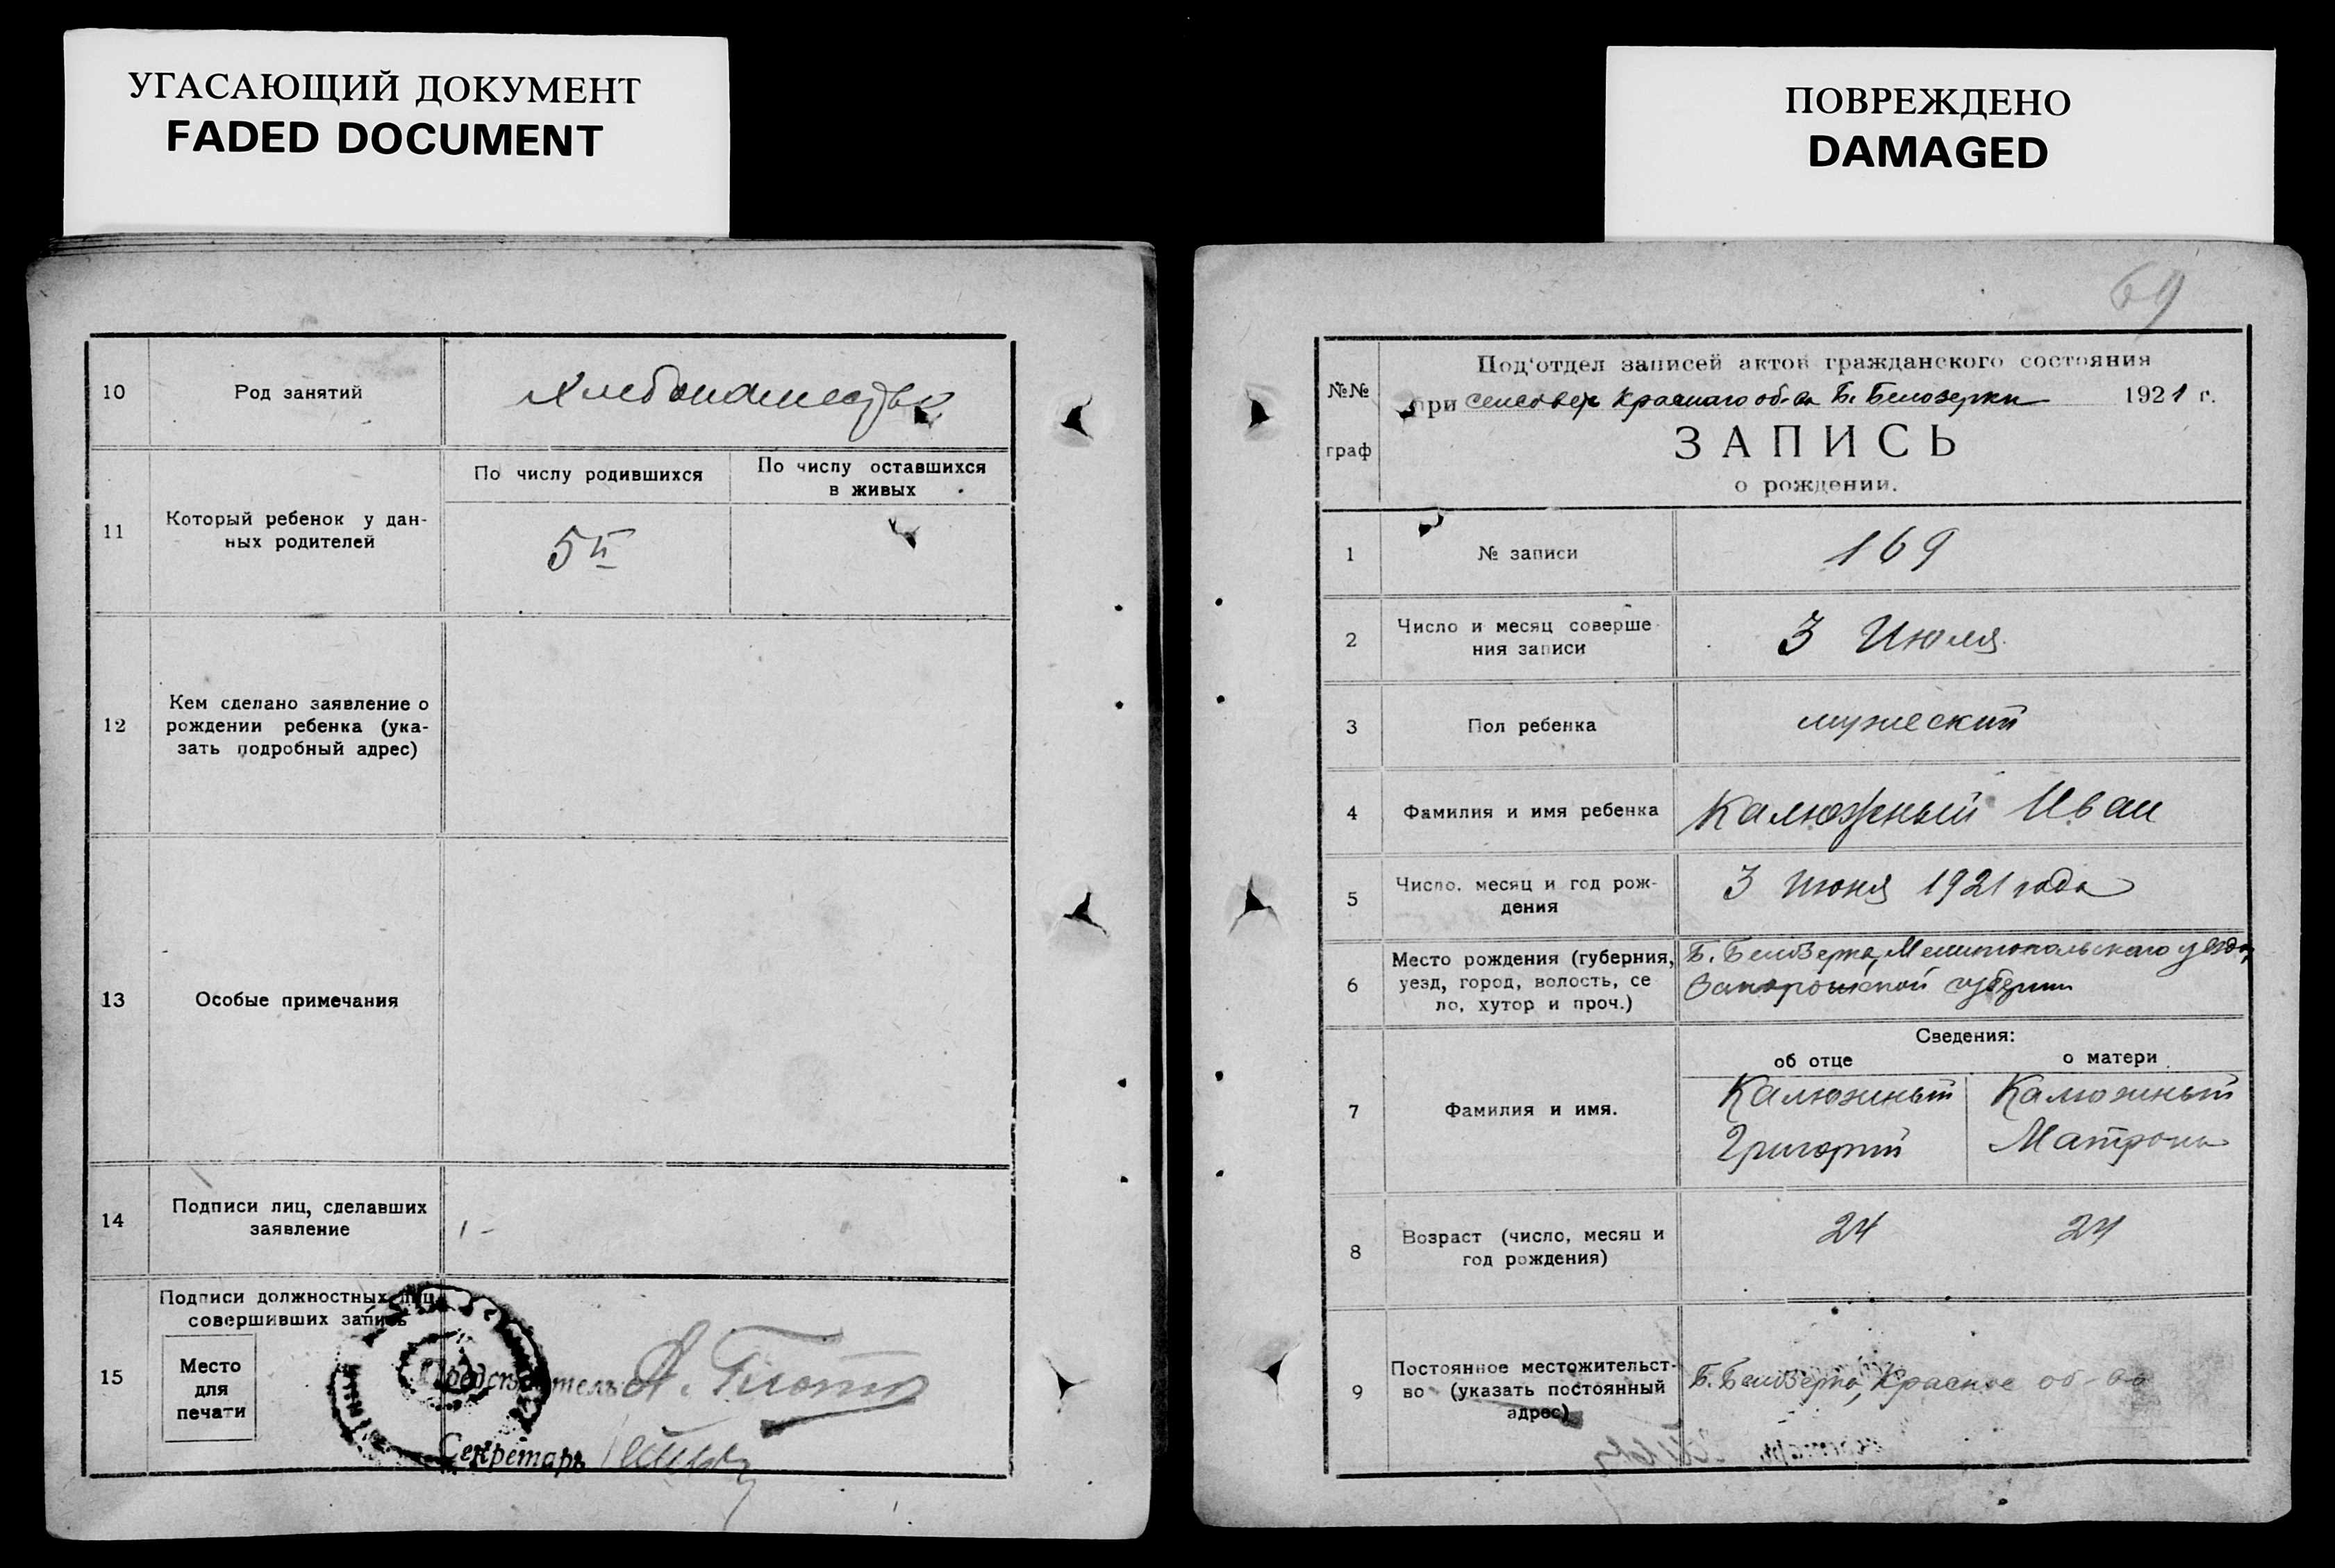 УГАСАЮЩИЙ ДОКУМЕНТ
FADED DOCUMENT
10
Род занятий
11
Который ребенок у дан-
ных родителей
По числу родившихся
По числу оставшихся
в живых
5й
12
Кем сделано заявление о
рождении ребенка (ука-
зать подробный адрес)
13
Особые примечания
14
Подписи лиц, сделавших
заявление
15
Подписи должностных лиц
совершивших запись
Место
для
печати
Председатель А.
Секретарь
ПОВРЕЖДЕНО
DAMAGED
69
№№
граф
Под'отдел записей актов гражданского состояния
при Краснаго об-ва Б. Белозерки 1921 г.
ЗАПИСЬ
о рождении.
1
№ записи
169
2
Число и месяц соверше-
ния записи
3 Июля
3
Пол ребенка
мужеский
4
Фамилия и имя ребенка
Калюжный Иван
5
Число, месяц и год рож-
дения
3 июня 1921 года
6
Место рождения (губерния,
уезд, город, волость, се
ло, хутор и проч.)
Б. Белозерка, Мелитопольскаго уезда,
Запорожской губернии
Сведения:
об отце
о матери
7
Фамилия и имя.
Калюжный
Григорий
Калюжный
Матрона
8
Возраст (число, месяц и
год рождения)
24
24
9
Постоянное местожительст-
во (указать постоянный
адрес)
Б. Белозерка, Красное об-во